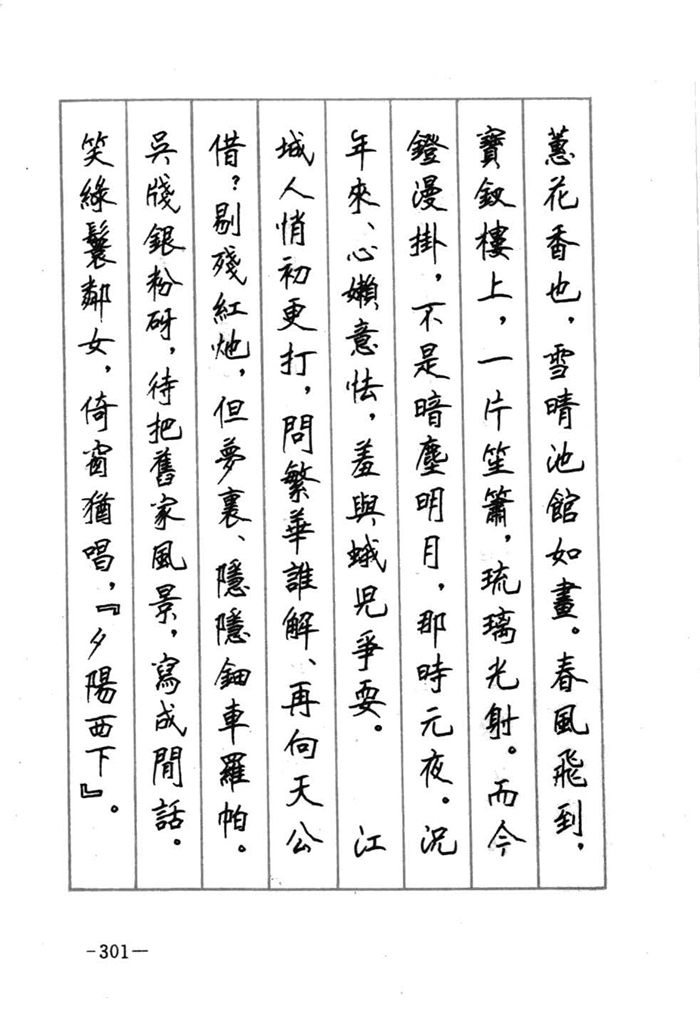 蕙花香也，雪晴池館如畫。春風飛到，
寶釵樓上，一片笙簫，琉璃光射。而今
鐙漫掛，不是暗塵明月，那時元夜。況
年來、心嬾意怯，羞與蛾兒爭耍。　江
城人悄初更打，問繁華誰解、再向天公
借？剔殘紅灺，但夢裏、隱隱鈿車羅帕。
吳牋銀粉砑，待把舊家風景，寫成閒話。
笑綠鬟鄰女，倚窗猶唱，『夕陽西下』。
-301-